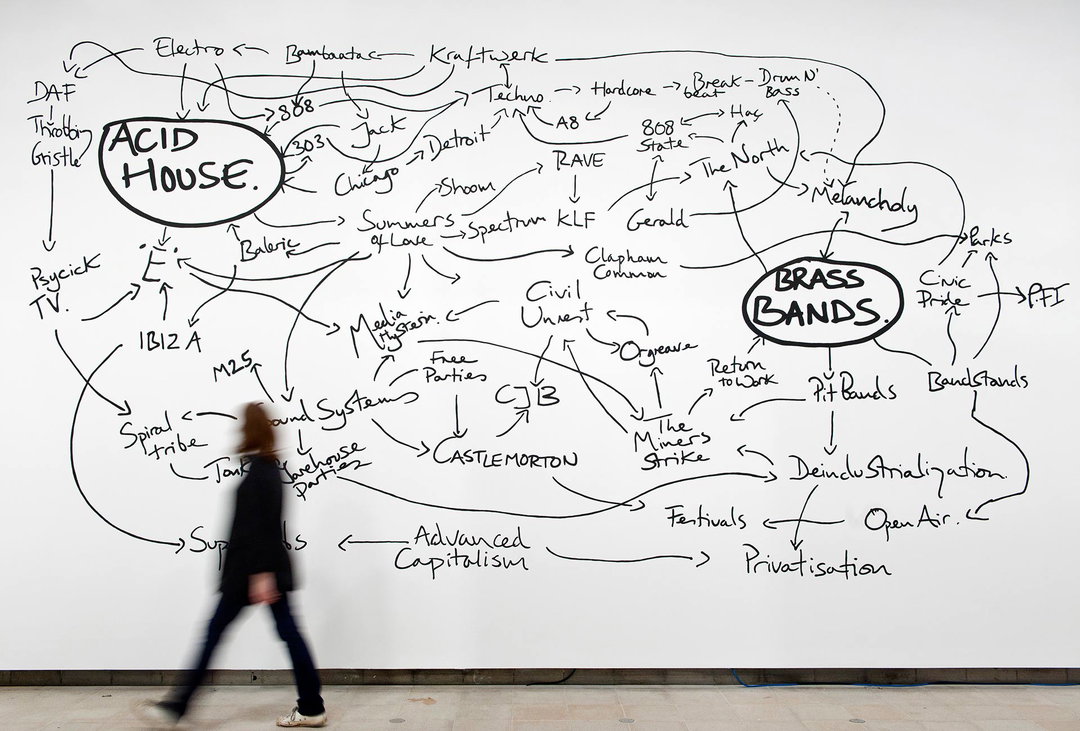 Electro
Bambaataa
Kraftwerk
DAF
808
Techno
Hardcore
Break
beat
Drum N'
Bass
Throbbin
Gristle
ACID
HOUSE.
303
Jack
Detroit
A8
808
State
Hac
Chicago
RAVE
The North
Shoom
Melancholy
Summers
of Love
Spectrum
KLF
Gerald
Baleric
Clapham
Common
Parks
Psycick
TV.
'E'.
BRASS
BANDS.
Civic
Pride
PFI
IBIZA
Media
Hysteria.
Civil
Unrest
Orgreave
M25
Free
Parties
CJB
Return
to Work
Pit Bands
Bandstands
Spiral
tribe
Sound Systems
CASTLEMORTON
The
Miners
Strike
Warehouse
Parties
Deindustrialization.
Festivals
Open Air.
Advanced
Capitalism
Privatisation